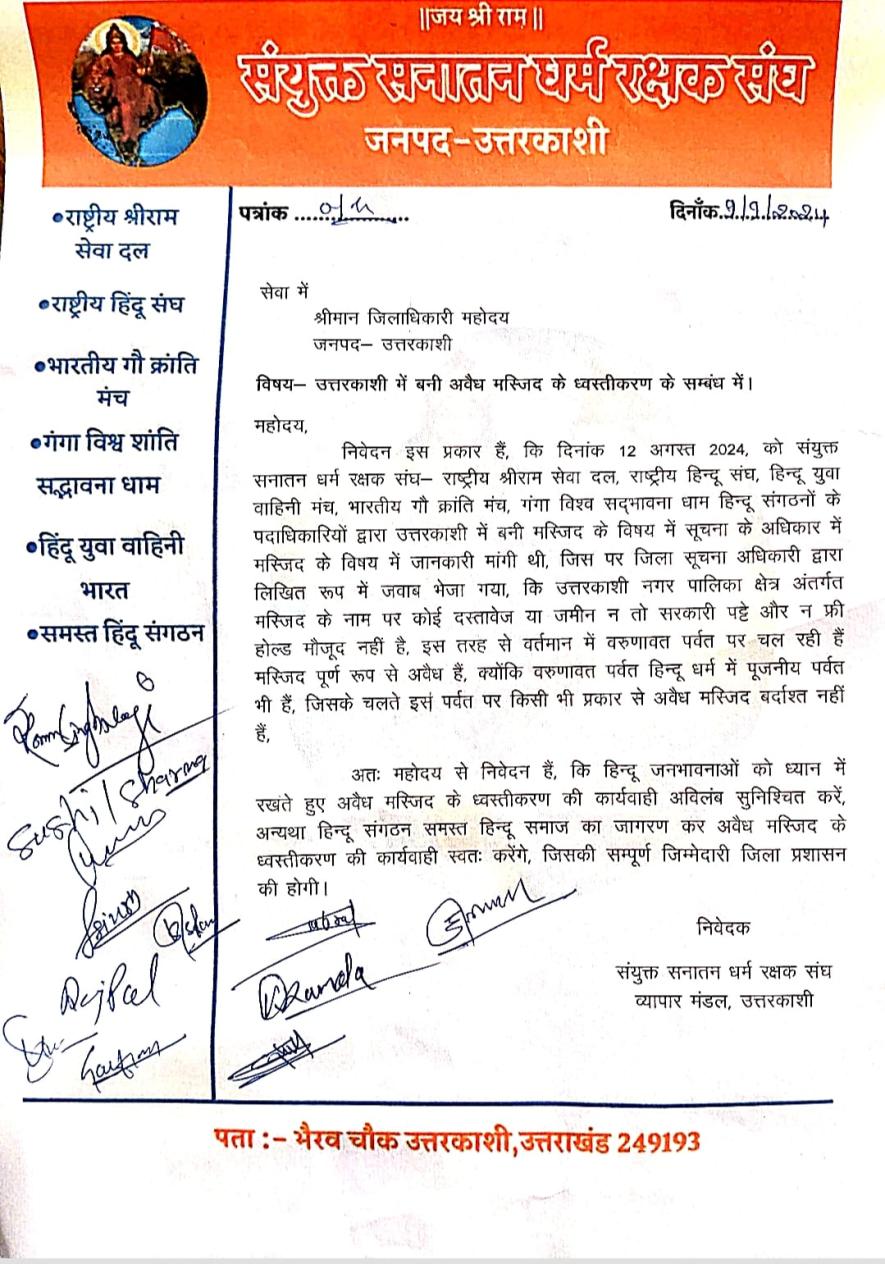 ||जय श्री राम||
संयुक्त सनातन धर्म रक्षक संघ
जनपद-उत्तरकाशी
पत्रांक
दिनाँक 9/9/2024
•राष्ट्रीय श्रीराम
सेवा दल
•राष्ट्रीय हिंदू संघ
•भारतीय गौ क्रांति
मंच
•गंगा विश्व शांति
सद्भावना धाम
•हिंदू युवा वाहिनी
भारत
•समस्त हिंदू संगठन
सेवा में
श्रीमान जिलाधिकारी महोदय
जनपद– उत्तरकाशी
विषय– उत्तरकाशी में बनी अवैध मस्जिद के ध्वस्तीकरण के सम्बंध में।
महोदय,
निवेदन इस प्रकार हैं, कि दिनांक 12 अगस्त 2024, को संयुक्त
सनातन धर्म रक्षक संघ– राष्ट्रीय श्रीराम सेवा दल, राष्ट्रीय हिन्दू संघ, हिन्दू युवा
वाहिनी मंच, भारतीय गौ क्रांति मंच, गंगा विश्व सद्‌भावना धाम हिन्दू संगठनों के
पदाधिकारियों द्वारा उत्तरकाशी में बनी मस्जिद के विषय में सूचना के अधिकार में
मस्जिद के विषय में जानकारी मांगी थी, जिस पर जिला सूचना अधिकारी द्वारा
लिखित रूप में जवाब भेजा गया, कि उत्तरकाशी नगर पालिका क्षेत्र अंतर्गत
मस्जिद के नाम पर कोई दस्तावेज या जमीन न तो सरकारी पट्टे और न फ्री
होल्ड मौजूद नहीं है, इस तरह से वर्तमान में वरुणावत पर्वत पर चल रही हैं
मस्जिद पूर्ण रूप से अवैध हैं, क्योंकि वरुणावत पर्वत हिन्दू धर्म में पूजनीय पर्वत
भी हैं, जिसके चलते इस पर्वत पर किसी भी प्रकार से अवैध मस्जिद बर्दाश्त नहीं
हैं,
अतः महोदय से निवेदन हैं, कि हिन्दू जनभावनाओं को ध्यान में
रखंते हुए अवैध मस्जिद के ध्वस्तीकरण की कार्यवाही अविलंब सुनिश्चित करें,
अन्यथा हिन्दू संगठन समस्त हिन्दू समाज का जागरण कर अवैध मस्जिद के
ध्वस्तीकरण की कार्यवाही स्वतः करेंगे, जिसकी सम्पूर्ण जिम्मेदारी जिला प्रशासन
की होगी।
Sushil Sharma
निवेदक
संयुक्त सनातन धर्म रक्षक संघ
व्यापार मंडल, उत्तरकाशी
पता :- भैरव चौक उत्तरकाशी,उत्तराखंड 249193